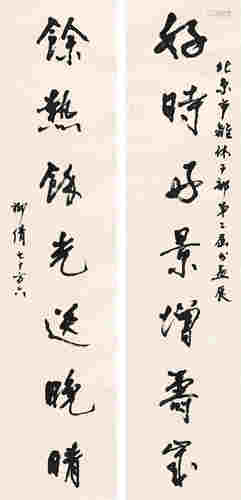 好時好景增壽宴
北京市離休干部第二屆書畫展
餘熱餘光送晚晴
謝倩七十有六